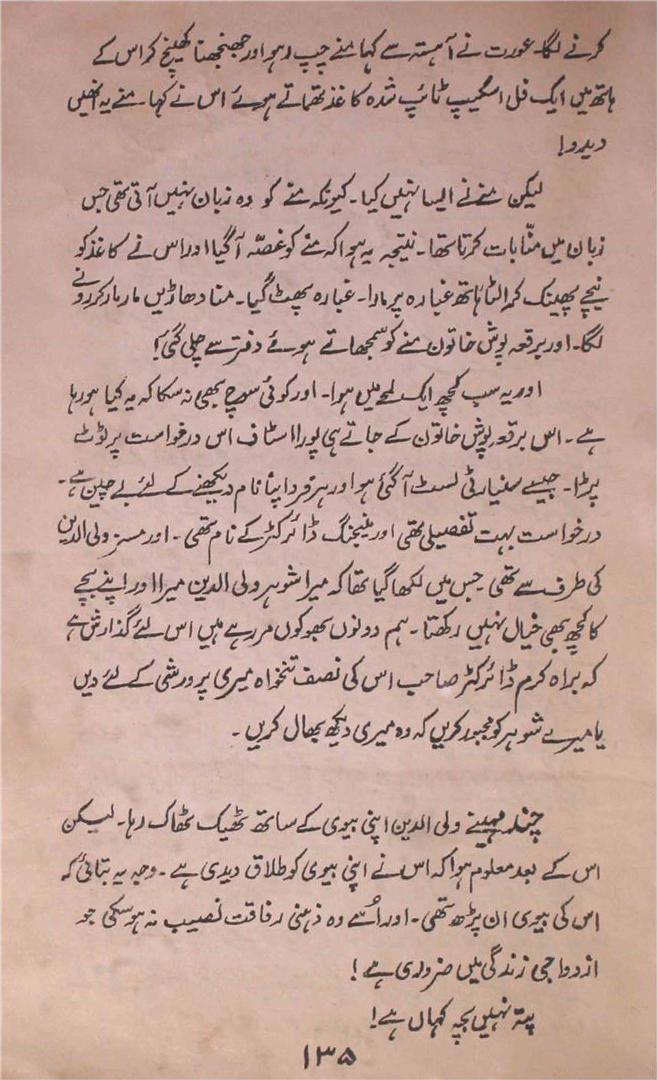 کرنے لگا۔ عورت نے آہستہ سے کہا منے چپ رہو اور جھنجھنا کھینچ کر اس کے
ہاتھ میں ایک فل اسکیپ ٹائپ شدہ کاغذ تھماتے ہوئے اس نے کہا۔ منے یہ انھیں
دیدو!
لیکن منے نے ایسا نہیں کیا۔ کیونکہ منے کو وہ زبان نہیں آتی تھی جس
زبان میں منّا بات کرتا تھا۔ نتیجہ یہ ہوا کہ منے کو غصّہ آگیا اور اس نے کاغذ کو
نیچے پھینک کر الٹا ہاتھ غبارہ پر مارا۔ غبارہ پھٹ گیا۔ منا دھاڑیں مار مار کر رونے
لگا۔ اور برقعہ پوش خاتون منے کو سمجھاتے ہوئے دفتر سے چلی گئی!
اور یہ سب کچھ ایک لمحے میں ہوا۔ اور کوئی سوچ بھی نہ سکا کہ یہ کیا ہو رہا
ہے۔ اس برقعہ پوش خاتون کے جاتے ہی پورا اسٹاف اس درخواست پر ٹوٹ
پڑا۔ جیسے سنیارٹی لسٹ آگئی ہو اور ہر فرد اپنا نام دیکھنے کے لئے بے چین ہے۔
درخواست بہت تفصیلی تھی اور منیجنگ ڈائرکٹر کے نام تھی۔ اور مسز ولی الدین
کی طرف سے تھی۔ جس میں لکھا گیا تھا کہ میرا شوہر ولی الدین میرا اور اپنے بچے
کا کچھ بھی خیال نہیں رکھتا۔ ہم دونوں بھوکوں مر رہے ہیں اس لئے گذارش ہے
کہ براہ کرم ڈائرکٹر صاحب اس کی نصف تنخواہ میری پرورشی کے لئے دیں
یا میرے شوہر کو مجبور کریں کہ وہ میری دیکھ بھال کریں۔
چند مہینے ولی الدین اپنی بیوی کے ساتھ ٹھیک ٹھاک رہا۔ لیکن
اس کے بعد معلوم ہوا کہ اس نے اپنی بیوی کو طلاق دیدی ہے۔ وجہ یہ بتائی کہ
اس کی بیوی ان پڑھ تھی۔ اور اُسے وہ ذہنی رفاقت نصیب نہ ہو سکی جو
ازدواجی زندگی میں ضروری ہے!
پتہ نہیں بچہ کہاں ہے!
۱۳۵